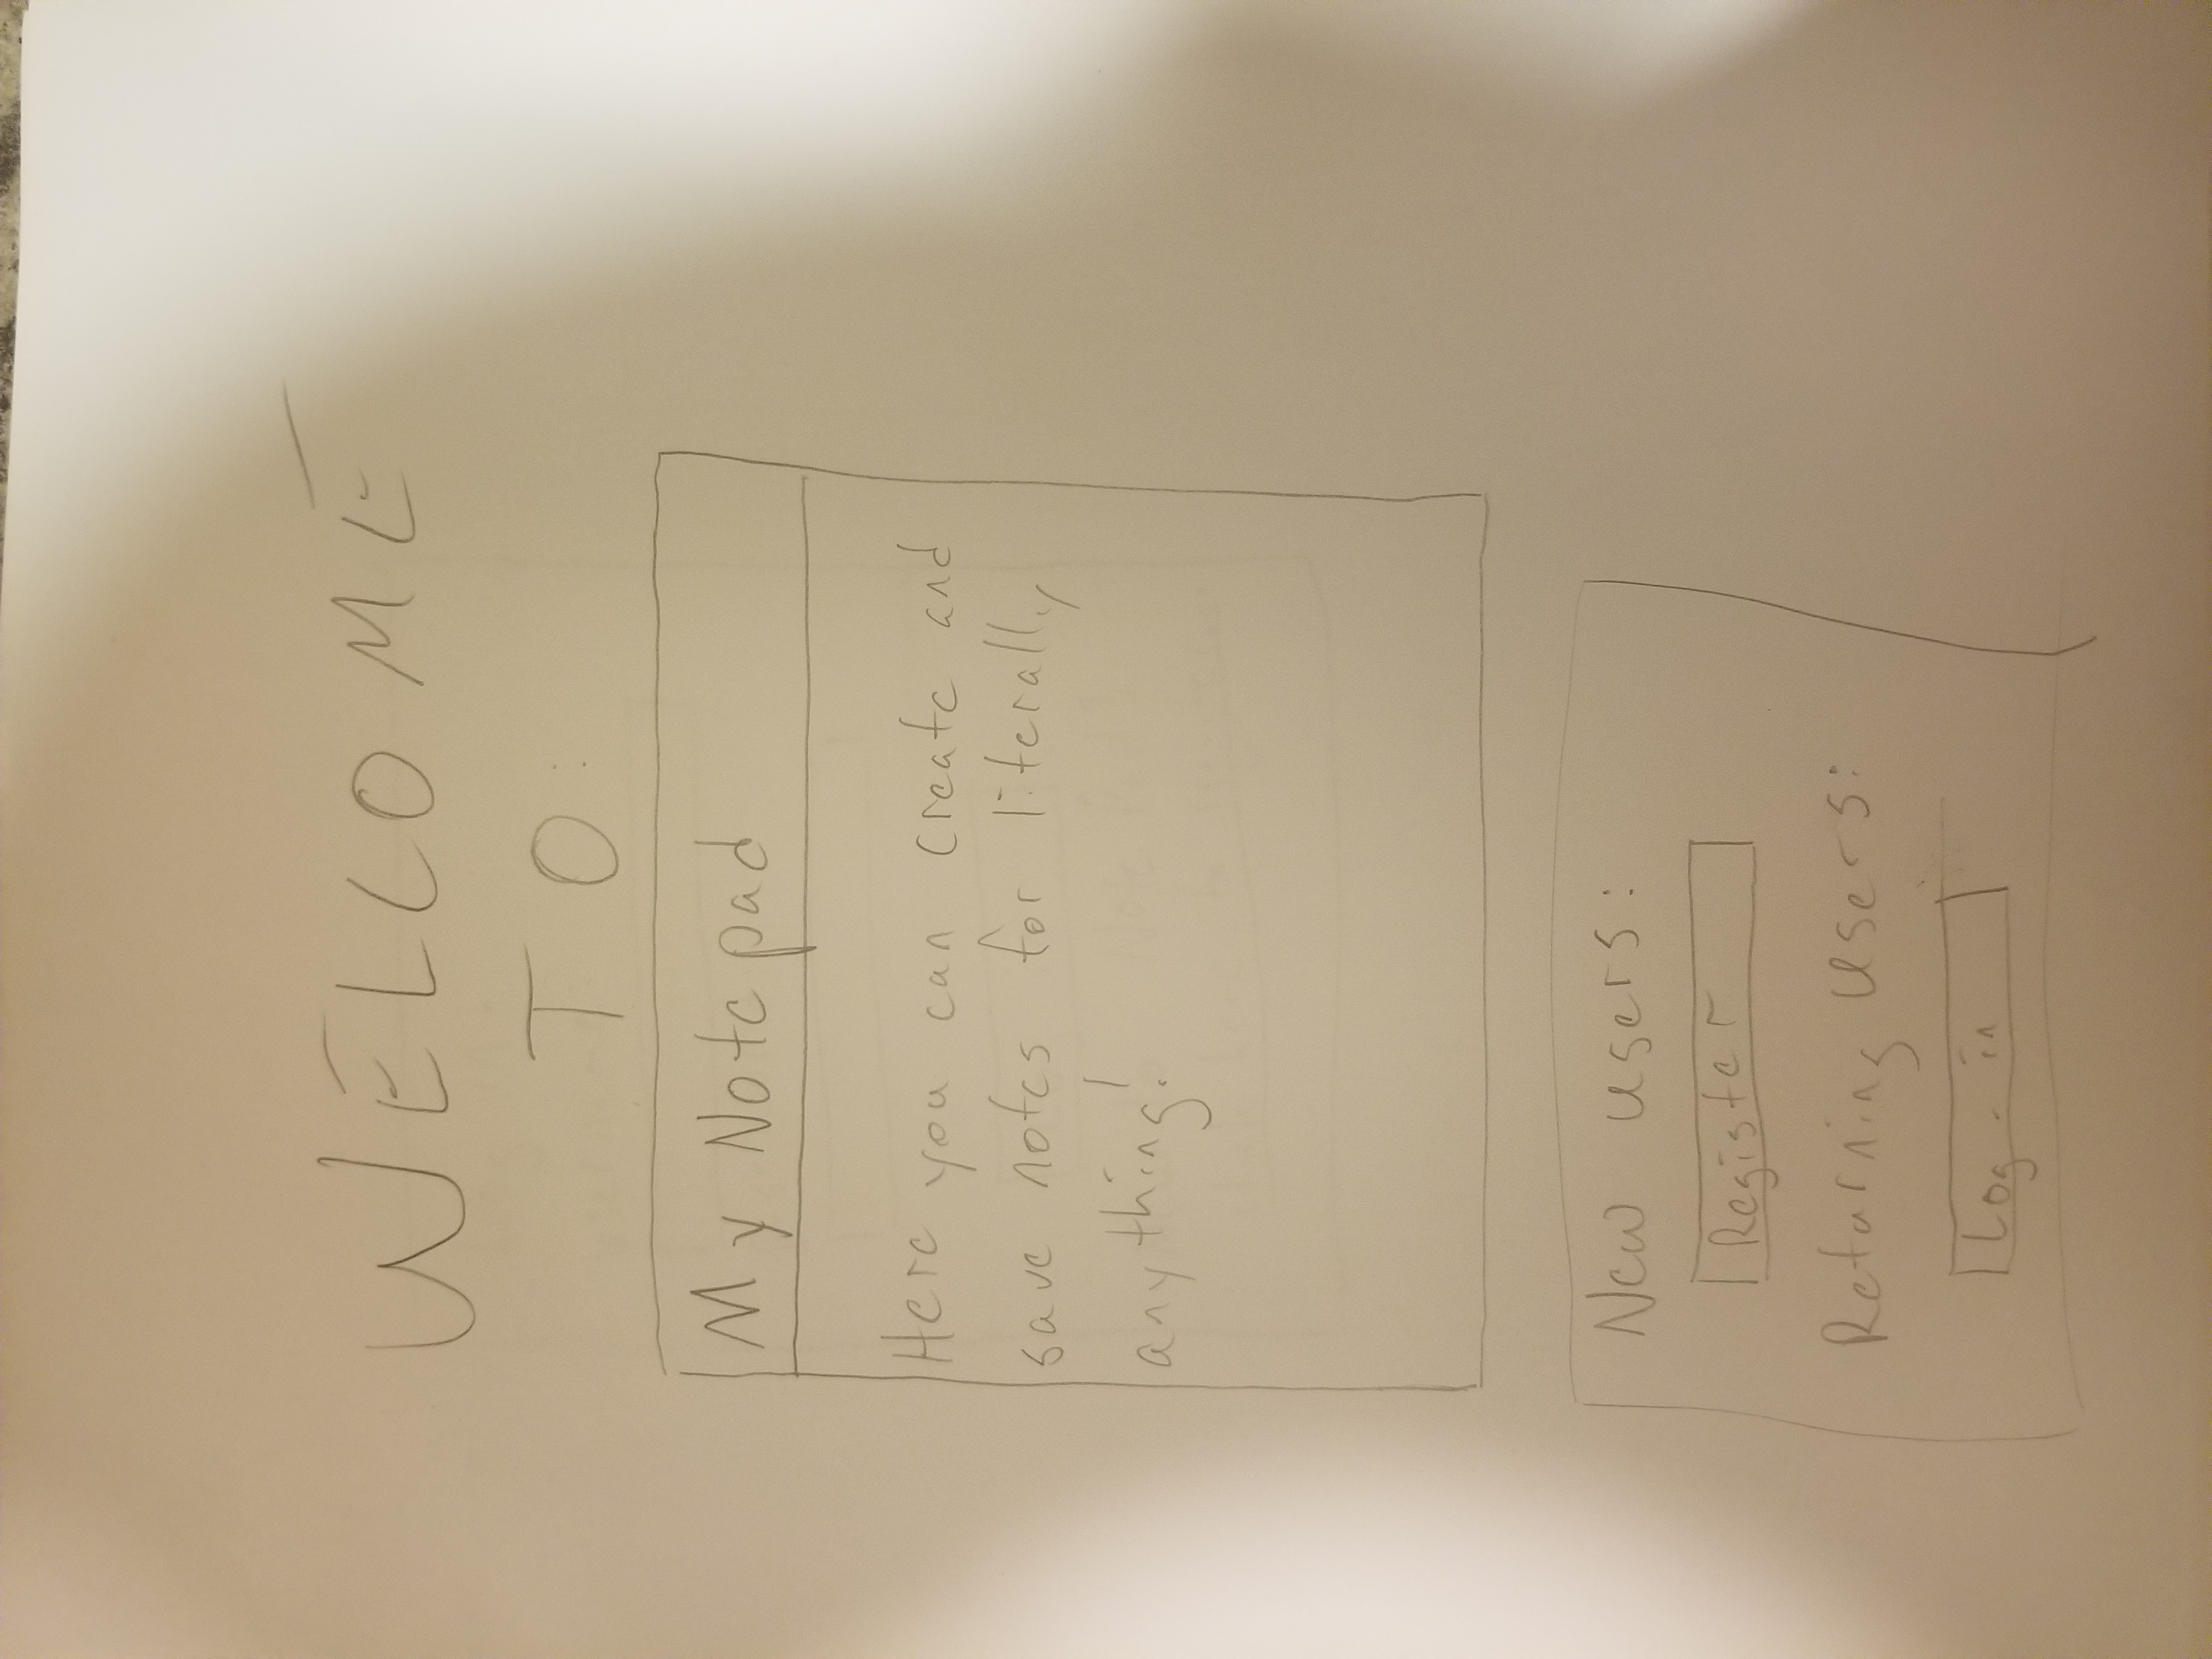 WELCOME
TO:
My Notepad
Here you can create and
save notes for literally
anything!
New users:
Register
Returning users:
Log-in